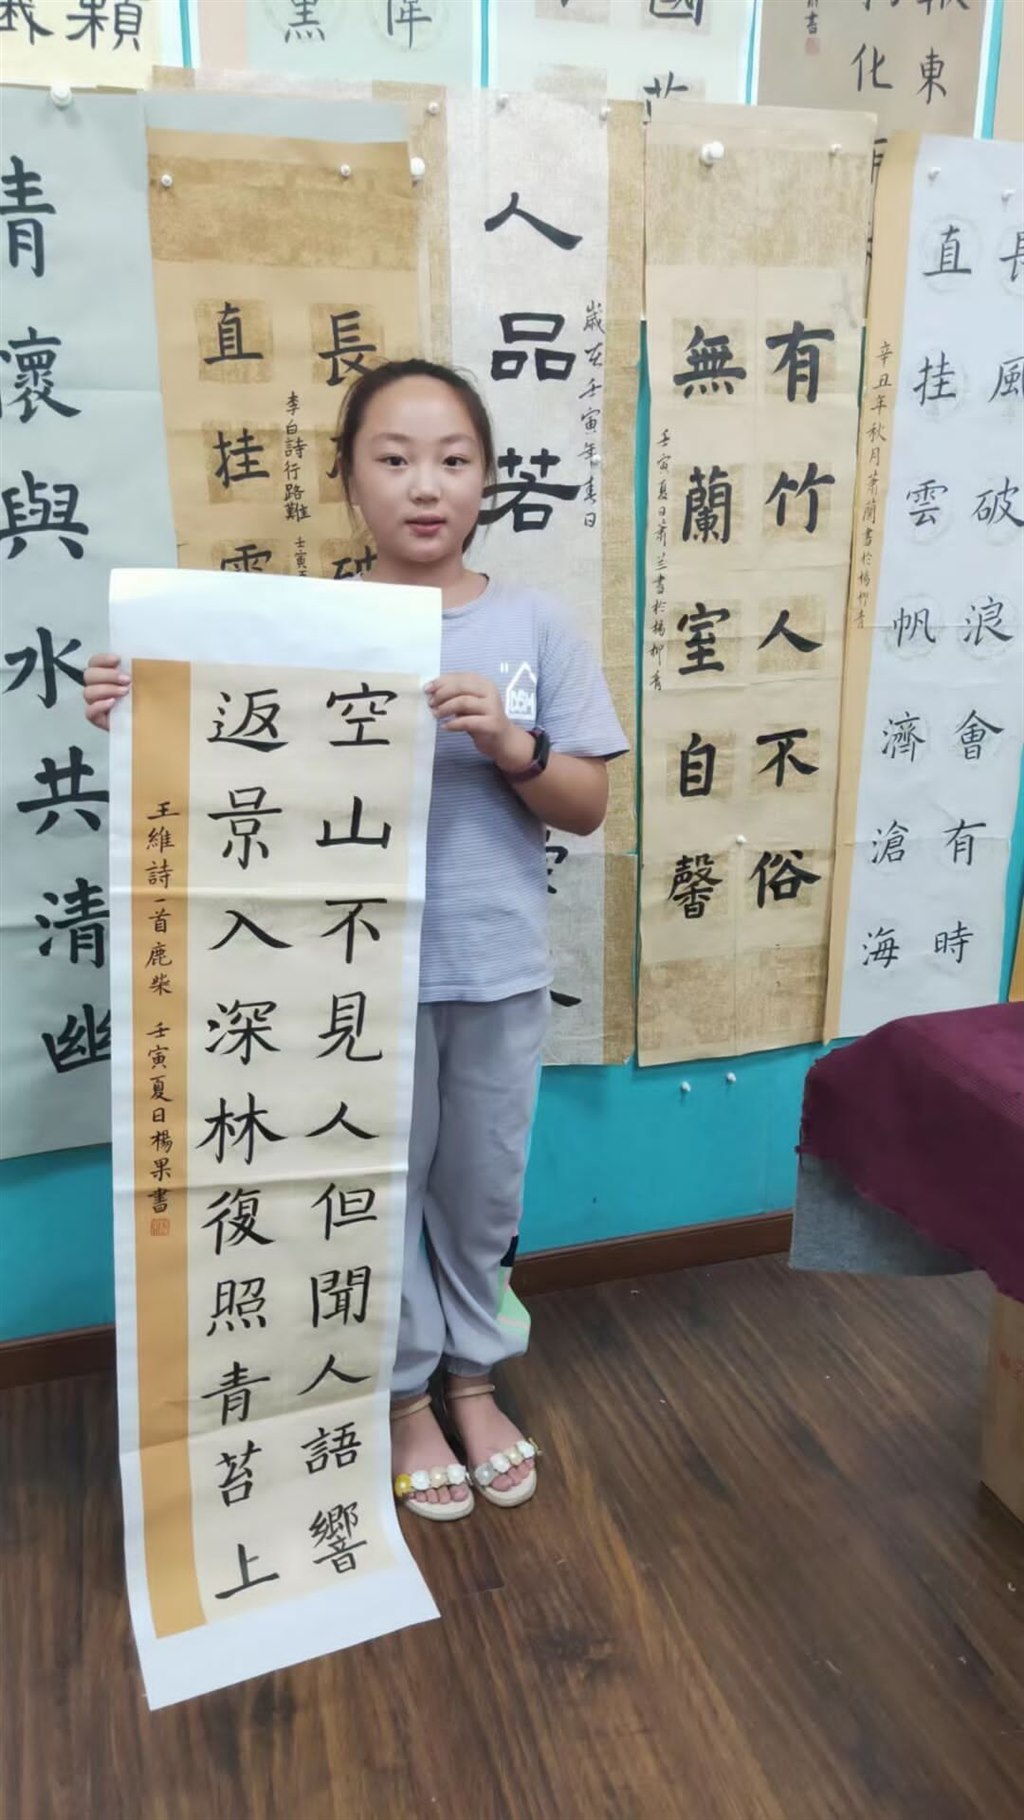 空山不見人但聞人語響
返景入深林復照青苔上
王維詩一首鹿柴 壬寅夏日楊果書
有竹人不俗
無蘭室自馨
壬寅夏日肅兰書於楊柳青
人品若
歲在壬寅年春日
長
直挂雲
李白詩行路難 壬寅
清懷與水共清幽
長風破浪會有時
直挂雲帆濟滄海
辛丑年秋月蕭蘭書於楊柳青
國
東
化
書
黑
穎